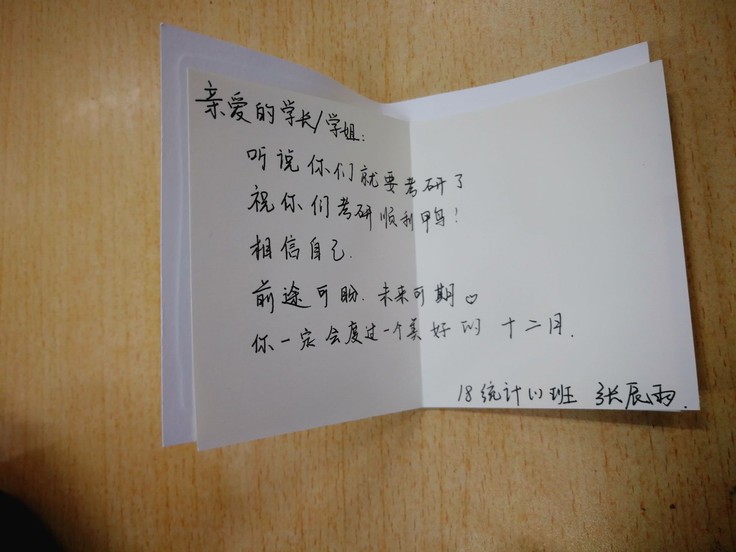 亲爱的学长/学姐:
听说你们就要考研了
祝你们考研顺利鸭!
相信自己.
前途可盼.未来可期♡
你一定会度过一个美好的 十二月.
18统计(1)班 张辰雨.